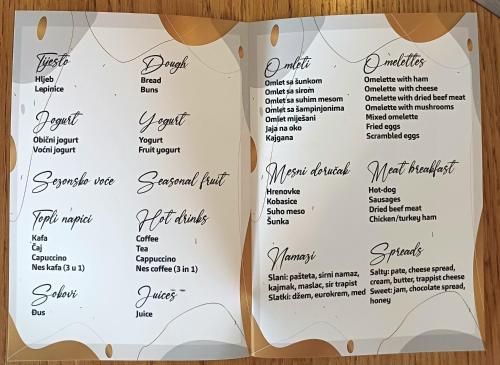 Tijesto
Hljeb
Lepinice
Dough
Bread
Buns
Jogurt
Obični jogurt
Voćni jogurt
Yogurt
Yogurt
Fruit yogurt
Sezonsko voće
Seasonal fruit
Topli napici
Kafa
Čaj
Capuccino
Nes kafa (3 u 1)
Hot drinks
Coffee
Tea
Cappuccino
Nes coffee (3 in 1)
Sokovi
Đus
Juices
Juice
Omleti
Omlet sa šunkom
Omlet sa sirom
Omlet sa suhim mesom
Omlet sa šampinjonima
Omlet miješani
Jaja na oko
Kajgana
Omelettes
Omelette with ham
Omelette with cheese
Omelette with dried beef meat
Omelette with mushrooms
Mixed omelette
Fried eggs
Scrambled eggs
Mesni doručak
Hrenovke
Kobasice
Suho meso
Šunka
Meat breakfast
Hot-dog
Sausages
Dried beef meat
Chicken/turkey ham
Namazi
Slani: pašteta, sirni namaz,
kajmak, maslac, sir trapist
Slatki: džem, eurokrem, med
Spreads
Salty: pate, cheese spread,
cream, butter, trappist cheese
Sweet: jam, chocolate spread,
honey